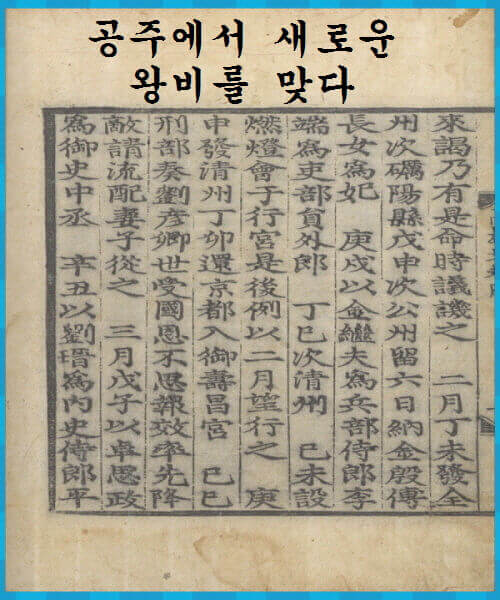 공주에서 새로운
왕비를 맞다
來謁乃有是命時議譏之　二月丁未發全
州次礪陽縣戊申次公州留六日納金殷傅
長女為妃　庚戌以金繼夫為兵部侍郎李
端為吏部貟外郎　丁巳次清州　己未設
燃燈會于行宮是後例以二月望行之　庚
申發清州丁卯還京都入御壽昌宮　己巳
刑部奏劉彦卿世受國恩不思報效率先降
敵請流配妻子從之　三月戊子以卓思政
為御史中丞　辛丑以劉瑨為內史侍郎平